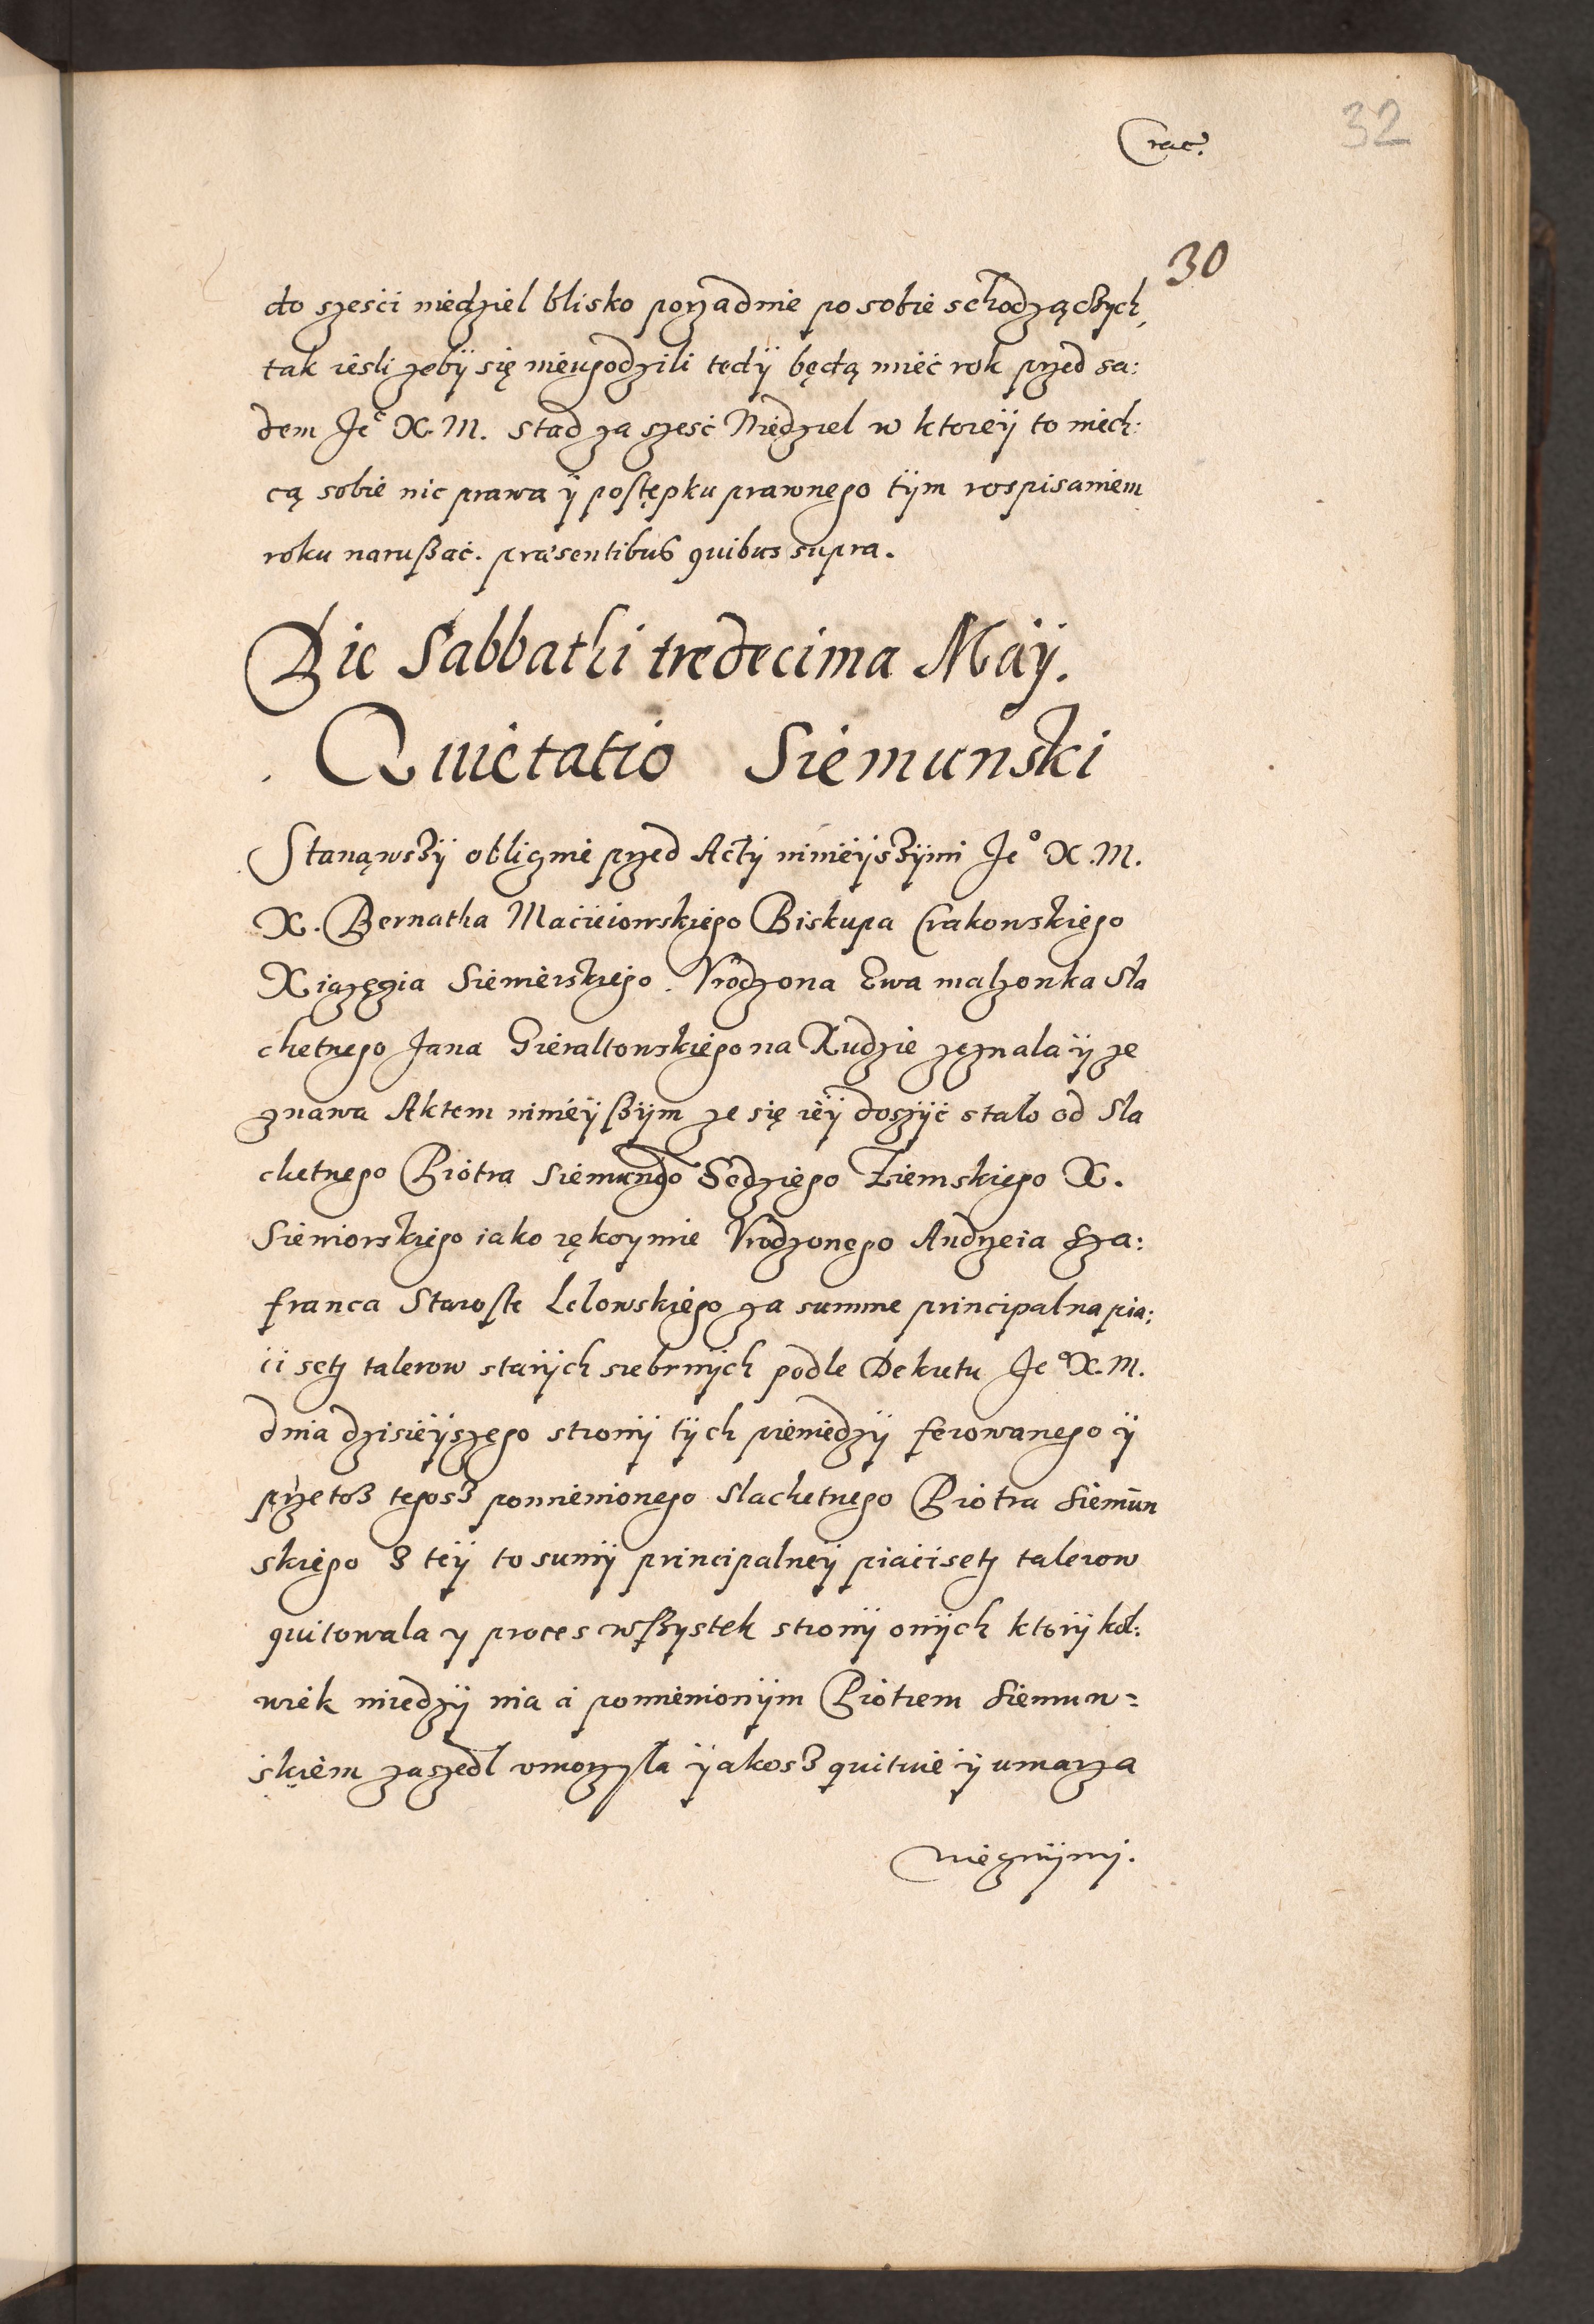 Crac.
32
30
do szesci niedziel blisko porzadnie po sobie schodzączych,
tak iesli zebÿ się nieugodzili tedÿ będą mieć rok przed sa:
dem Je° X. M. stad za szesć Niedziel w ktoreÿ to niech:
cą sobie nic prawa ÿ postępku prawnego tÿm rospisaniem
roku narußać. præsentibus quibus supra.
Die Sabbathi tredecima Maÿ.
Quietatio Siemunski
Stanąwszÿ oblicznie przed Actÿ ninieÿszÿmi Je° X. M.
X. Bernatha Macieiowskiego Biskupa Crakowskiego
Xiazęcia Siewierskiego. Vrodzona Ewa malzonka Sla
chetnego Jana Gieraltowskiego na Rudzie zeznala ÿ ze
znawa Aktem ninieÿßÿm ze się ieÿ doszÿć stalo od Sla
chetnego Piotra Siemungo Sędziego Ziemskiego X.
Siewiorskiego iako rękoymie Vrodzonego Andrzeia Sza:
franca Staroste Lelowskiego za summe principalna pia:
ci setz talerow starÿch srebrnÿch podle Dekretu Je° X. M.
dnia dzisieÿszego stronÿ tÿch pieniedzÿ ferowanego ÿ
przetosz tegosz pomienionego Slachetnego Piotra Siemūn
skiego z teÿ to sumÿ principalneÿ piaci setz talerow
quitowala y proces wszystek stronÿ onÿch ktorÿ kol:
wiek miedzÿ nia a pomienionÿm Piotrem Siemun=
skiem zaszedl vmorzÿla ÿakosz quituie ÿ umarza
wiecznÿmi.